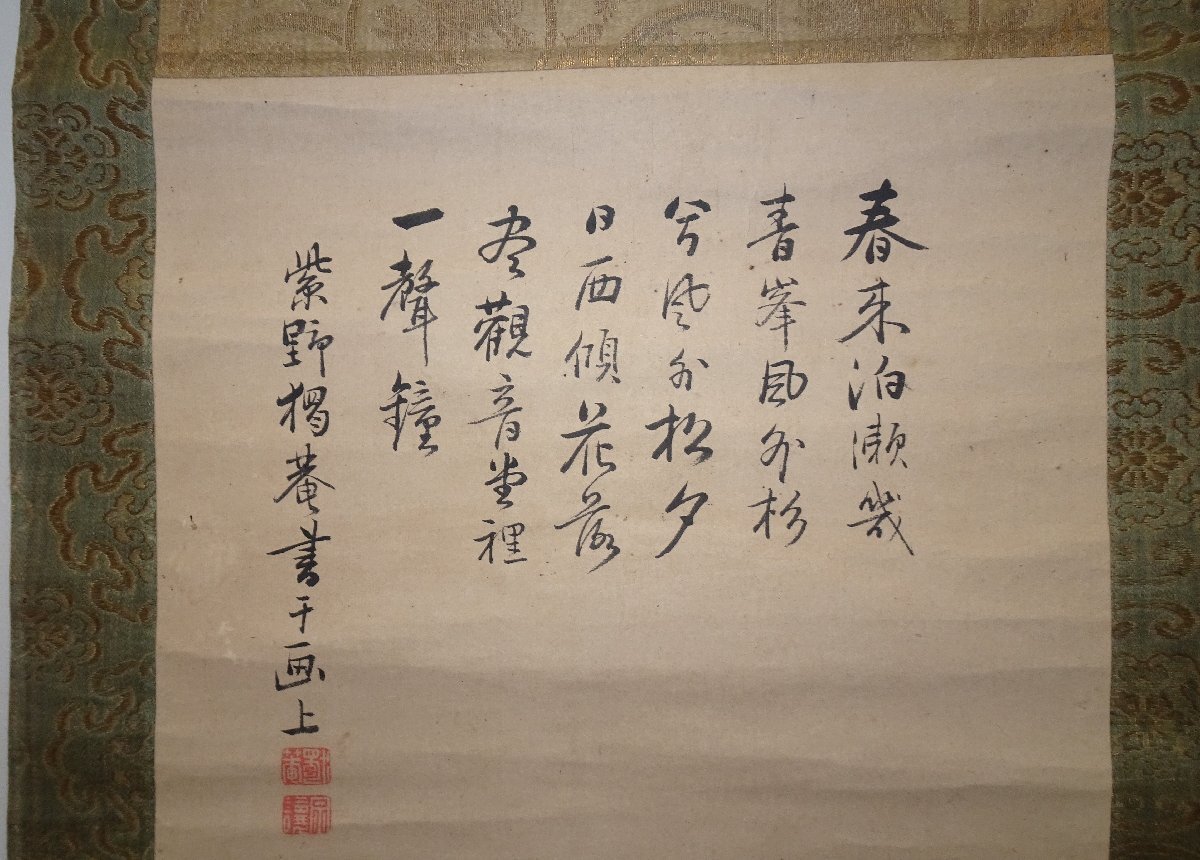 春来泊瀬幾
青峯風外杉
兮風外松夕
日西傾花落
尽觀音堂裡
一聲鐘
紫野獨菴書于画上